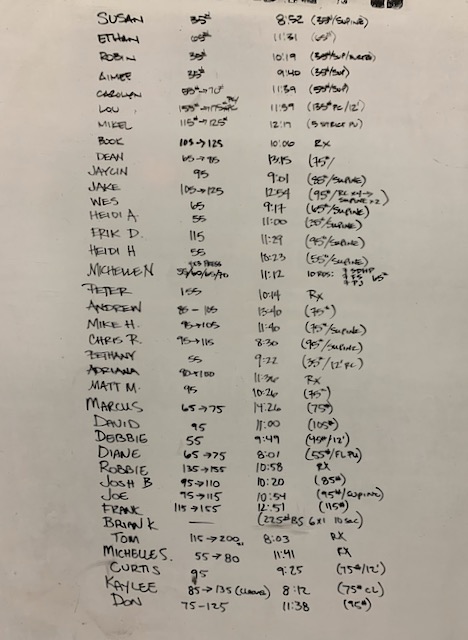 SUSAN 35# 8:52 (35#/SUPINE)
ETHAN 65# 11:31 (65#)
ROBIN 35# 10:19
AIMEE 35# 9:40 (35#/SUP)
CAROLYN 55#→70# 11:39 (55#/SUP)
LOU 155#→175# 11:59 (135# PC/12')
MIKEL 115#→125# 12:17 (5 STRICT PU)
BOOK 105→125 10:06 RX
DEAN 65→85 13:15 (75#/
JAYCIN 95 9:01 (85#/SUPINE)
JAKE 105→125 12:54 (95#/RC x4→ SUPINE x2)
WES 65 9:17 (65#/SUPINE)
HEIDI A. 55 11:00 (35#/SUPINE)
ERIK D. 115 11:29 (95#/SUPINE)
HEIDI H 55 10:23 (55#/SUPINE)
MICHELLE N 55/60/65/70 11:12 10 RDS: 65#
PETER 155 10:14 RX
ANDREW 85-105 13:40 (75#)
MIKE H. 95→105 11:40 (75#/SUPINE)
CHRIS R. 95→115 8:30 (95#/SUPINE)
BETHANY 55 9:22 (35#/12' PC)
ADRIANA 80→100 11:36 RX
MATT M. 95 10:26 (75#)
MARCUS 65→75 14:26 (75#)
DAVID 95 11:00 (105#)
DEBBIE 55 9:49 (45#/12')
DIANE 65→75 8:01 (55#/FL PU)
ROBBIE 135→155 10:58 RX
JOSH B 95→110 10:20 (85#)
JOE 95→115 10:54 (95#/SUPINE)
FRANK 115→155 12:51 (115#)
BRIAN K — (225# BS 6x1 10 SEC)
TOM 115→200 8:03 RX
MICHELLE S. 55→80 11:41 RX
CURTIS 95 9:25 (75#/12')
KAYLEE 85→135 (CLEANS) 8:12 (75# CL)
DON 75-125 11:38 (95#)